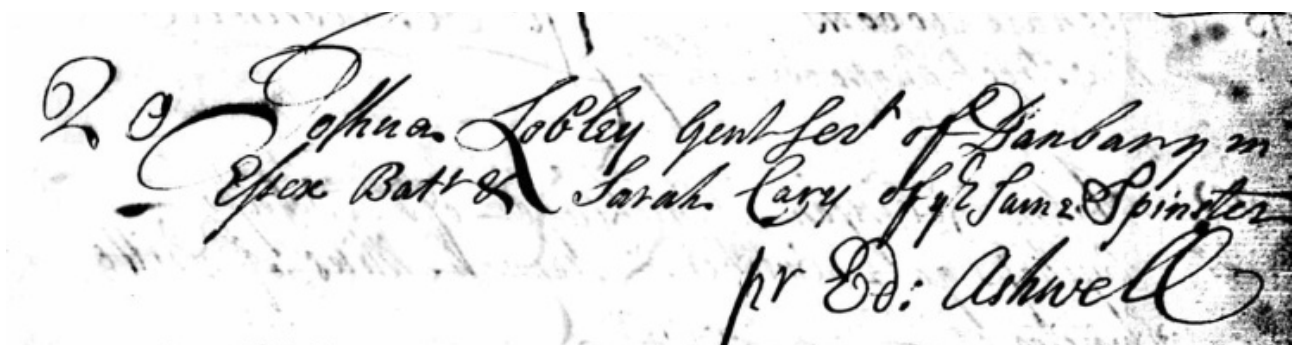 20 Joshua Lobley Gent Sert of Danbary in
Essex Batr & Sarah Cary of ye Same Spinster
pr Ed: Ashwell